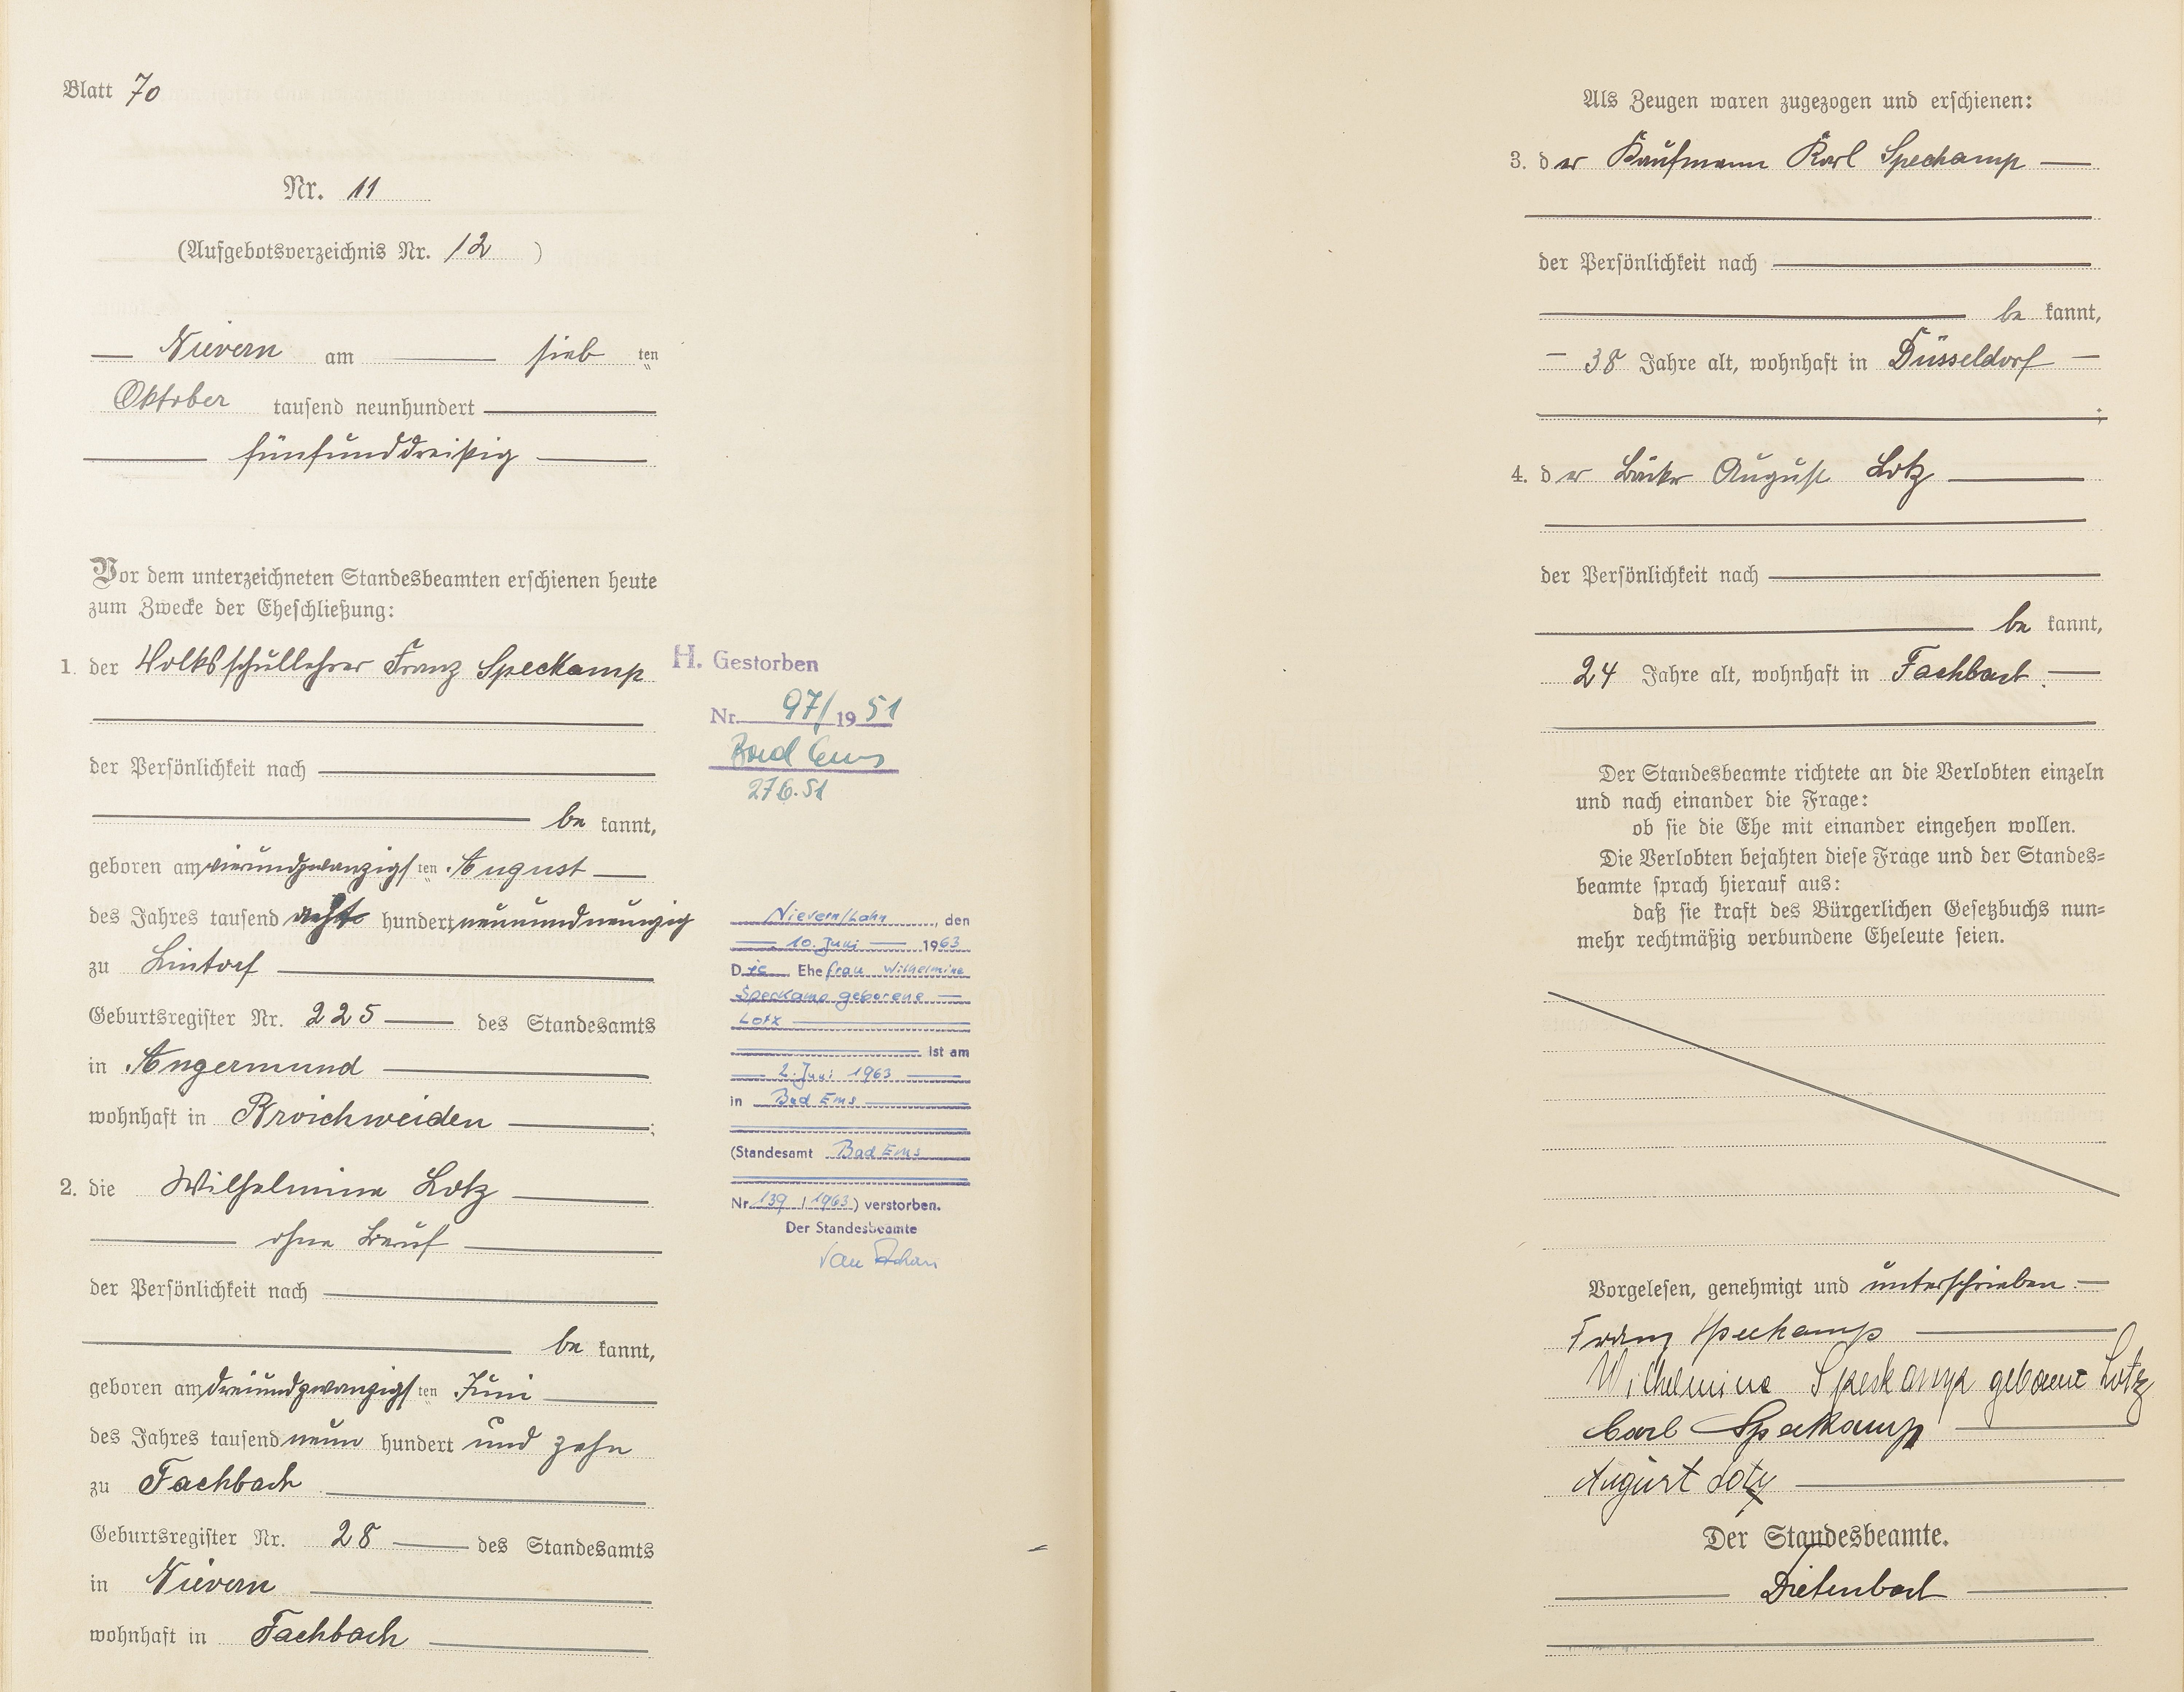 Blatt 70
Nr. 11
(Aufgebotsverzeichnis Nr. 12 )
Nievern am sieb ten
Oktober tausend neunhundert
fünfunddreißig
Vor dem unterzeichneten Standesbeamten erschienen heute
zum Zwecke der Eheschließung:
1. der Volksschullehrer Franz Speckamp
der Persönlichkeit nach
be kannt,
geboren am vierundzwanzigs ten August
des Jahres tausend acht hundert neunundneunzig
zu Lintorf
Geburtsregister Nr. 225 des Standesamts
in Angermund
wohnhaft in Broichweiden ;
2. die Wilhelmina Lotz
ohne Beruf
der Persönlichkeit nach
be kannt,
geboren am dreiundzwanzigs ten Juni
des Jahres tausend neun hundert und zehn
zu Fachbach
Geburtsregister Nr. 28 des Standesamts
in Nievern
wohnhaft in Fachbach
H. Gestorben
Nr. 97/ 19 51
Bad Ems
27.6.51
Nievern/Lahn, den
10. Juni 1963
Die Ehefrau Wilhelmine
Speckamp geborene
Lotz
ist am
2. Juni 1963
in Bad Ems
(Standesamt Bad Ems
Nr. 139 / 1963) verstorben.
Der Standesbeamte
Als Zeugen waren zugezogen und erschienen:
3. der Kaufmann Karl Speckamp
der Persönlichkeit nach
be kannt,
38 Jahre alt, wohnhaft in Düsseldorf
;
4. der Bäcker August Lotz
der Persönlichkeit nach
be kannt,
24 Jahre alt, wohnhaft in Fachbach.
Der Standesbeamte richtete an die Verlobten einzeln
und nach einander die Frage:
ob sie die Ehe mit einander eingehen wollen.
Die Verlobten bejahten diese Frage und der Standes=
beamte sprach hierauf aus:
daß sie kraft des Bürgerlichen Gesetzbuchs nun=
mehr rechtmäßig verbundene Eheleute seien.
Vorgelesen, genehmigt und unterschrieben.
Franz Speckamp
Wilhelmine Speckamp geborene Lotz
Carl Speckamp
August Lotz
Der Standesbeamte.
Dietenbach